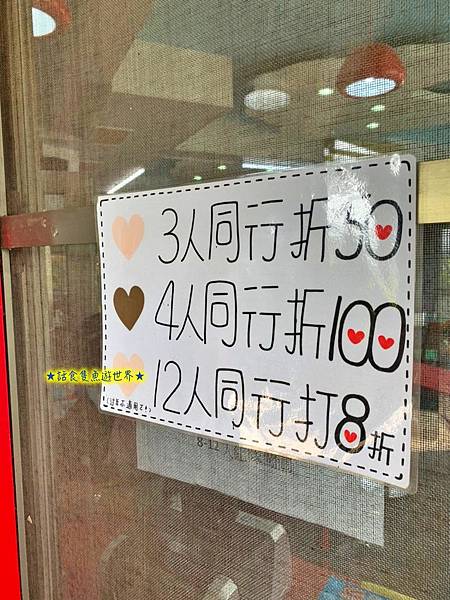 3人同行折50
4人同行折100
★話食隻魚遊世界★
12人同行打8折